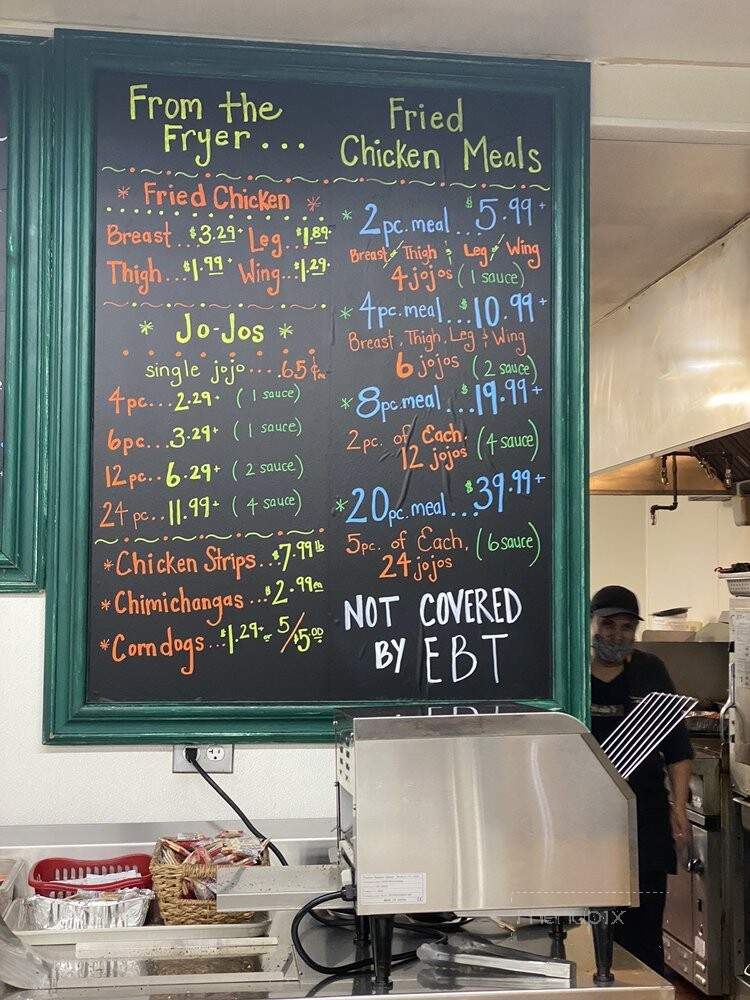 From the
Fryer...
* Fried Chicken *
Breast..$3.29+ Leg..$1.89+
Thigh..$1.99+ Wing..$1.29+
* Jo-Jos *
single jojo.....65¢ea
4pc...2.29+ (1 sauce)
6pc...3.29+ (1 sauce)
12pc..6.29+ (2 sauce)
24pc..11.99+ (4 sauce)
*Chicken Strips..$7.99lb
*Chimichangas...$2.99ea
*Corndogs...$1.29+ or 5/$5.00
Fried
Chicken Meals
*2pc.meal...$5.99+
Breast & Thigh & Leg & Wing
4 jojos (1 sauce)
*4pc.meal...$10.99+
Breast, Thigh, Leg & Wing
6 jojos (2 sauce)
*8pc.meal...$19.99+
2pc. of Each.
12 jojos (4 sauce)
*20pc.meal...$39.99+
5pc. of Each, (6 sauce)
24 jojos
NOT COVERED
BY EBT